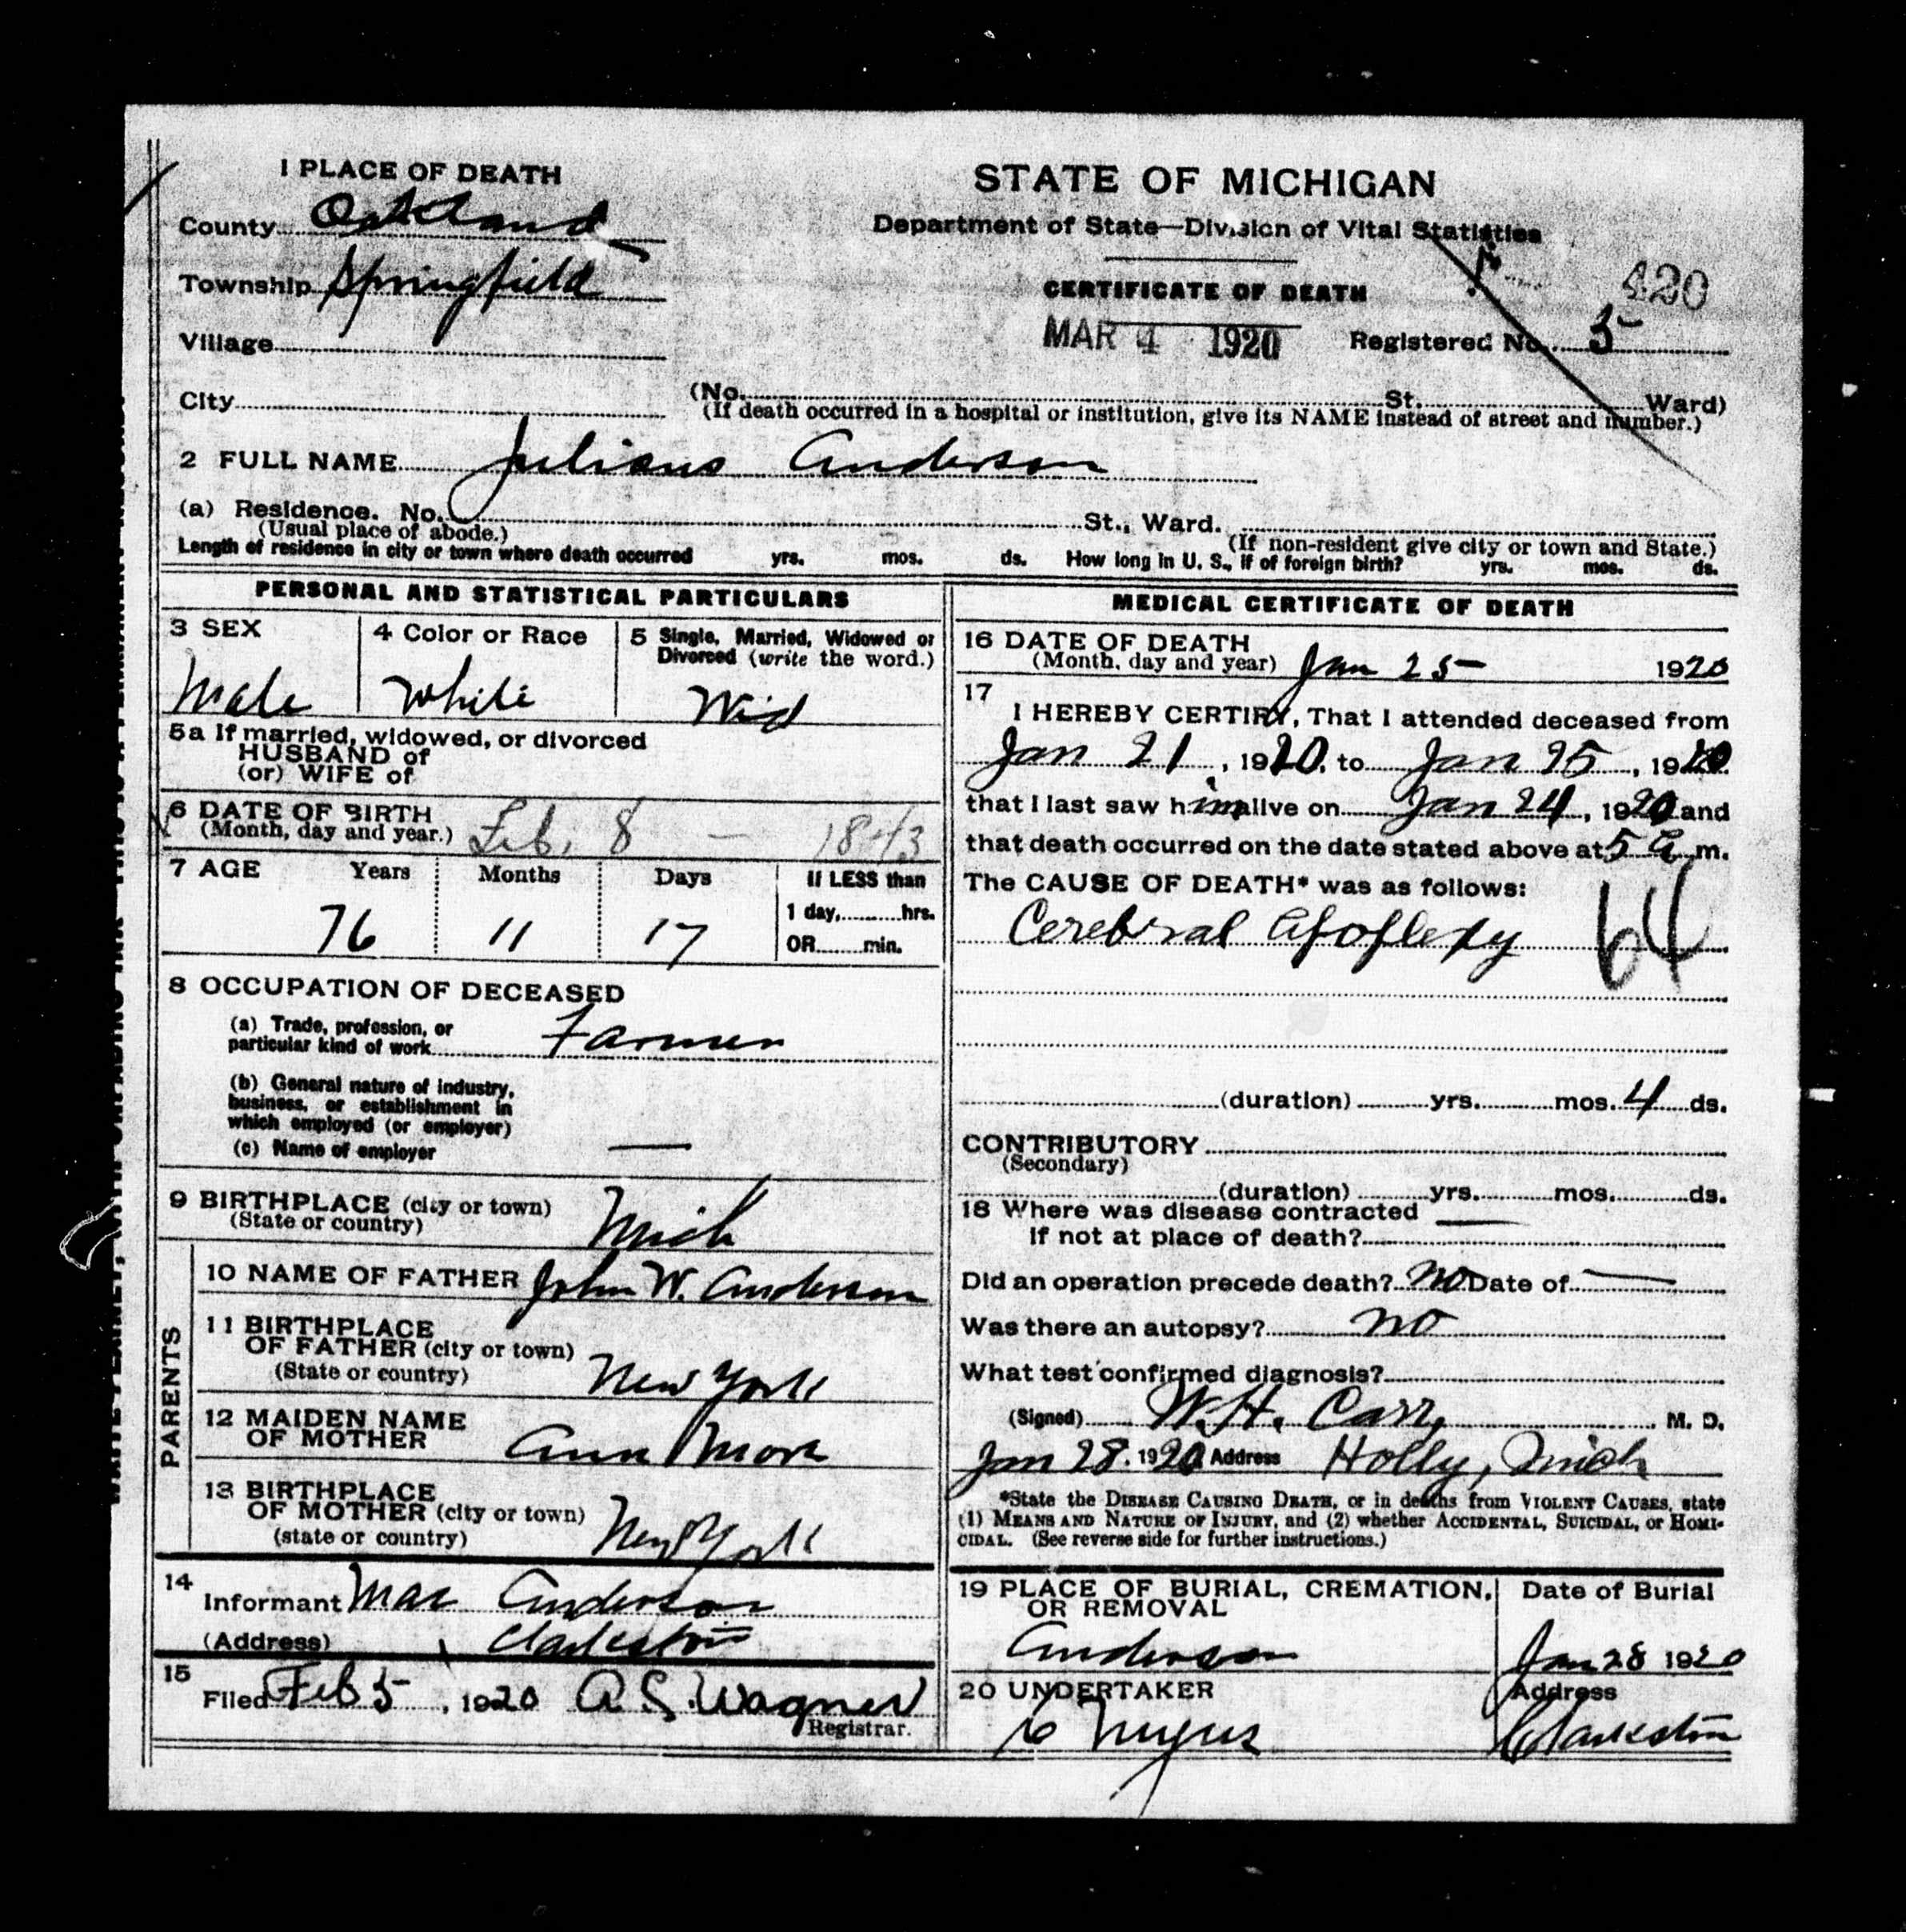 1 PLACE OF DEATH
STATE OF MICHIGAN
Department of State—Division of Vital Statistics
County Oakland
Township Springfield
CERTIFICATE OF DEATH
420
MAR 4 1920
Registered No. 5
Village
City
(No. St. Ward)
(If death occurred in a hospital or institution, give its NAME instead of street and number.)
2 FULL NAME Anderson
(a) Residence. No. St., Ward.
(Usual place of abode.)
(If non-resident give city or town and State.)
Length of residence in city or town where death occurred yrs. mos. ds. How long in U. S., if of foreign birth? yrs. mos. ds.
PERSONAL AND STATISTICAL PARTICULARS
3 SEX
Male
4 Color or Race
White
5 Single, Married, Widowed or
Divorced (write the word.)
Wid
5a If married, widowed, or divorced
HUSBAND of
(or) WIFE of
6 DATE OF BIRTH
(Month, day and year.) Feb. 8 — 1843
7 AGE Years Months Days If LESS than
1 day, hrs.
76 11 17 OR min.
8 OCCUPATION OF DECEASED
(a) Trade, profession, or
particular kind of work Farmer
(b) General nature of industry,
business, or establishment in
which employed (or employer)
(c) Name of employer —
9 BIRTHPLACE (city or town)
(State or country) Mich
PARENTS
10 NAME OF FATHER John W. Anderson
11 BIRTHPLACE
OF FATHER (city or town)
(State or country) New York
12 MAIDEN NAME
OF MOTHER Ann
13 BIRTHPLACE
OF MOTHER (city or town)
(state or country) New York
14
Informant Anderson
(Address) Clarkston
15
Filed Feb 5, 1920 A. S. Wagner
Registrar.
MEDICAL CERTIFICATE OF DEATH
16 DATE OF DEATH
(Month, day and year) Jan 25 1920
17
I HEREBY CERTIFY, That I attended deceased from
Jan 21, 1920, to Jan 25, 1920
that I last saw him alive on Jan 24, 1920 and
that death occurred on the date stated above at 5 a m.
The CAUSE OF DEATH* was as follows:
Cerebral Apoplexy 64
(duration) yrs. mos. 4 ds.
CONTRIBUTORY
(Secondary)
(duration) yrs. mos. ds.
18 Where was disease contracted
if not at place of death? —
Did an operation precede death? no Date of —
Was there an autopsy? no
What test confirmed diagnosis?
(Signed) W. H. Carr, M. D.
Jan 28, 1920 Address Holly, Mich
*State the DISEASE CAUSING DEATH, or in deaths from VIOLENT CAUSES, state
(1) MEANS AND NATURE OF INJURY, and (2) whether ACCIDENTAL, SUICIDAL, or HOMI-
CIDAL. (See reverse side for further instructions.)
19 PLACE OF BURIAL, CREMATION,
OR REMOVAL
Anderson
Date of Burial
Jan 28 1920
20 UNDERTAKER
Address
Clarkston